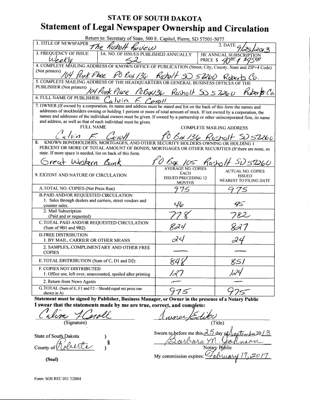 STATE OF SOUTH DAKOTA
Statement of Legal Newspaper Ownership and Circulation
Return to: Secretary of State, 500 E. Capitol, Pierre, SD 57501-5077
1. TITLE OF NEWSPAPER The Rosholt Review 2. DATE 9/25/2013
3. FREQUENCY OF ISSUES Weekly 3A. NO. OF ISSUES PUBLISHED ANNUALLY 52 3B. ANNUAL SUBSCRIPTION PRICE
4. COMPLETE MAILING ADDRESS OF KNOWN OFFICE OF PUBLICATION (Street, City, County, State and ZIP+4 Code) (Not printers)
104 Park Place PO Box 136 Rosholt SD 57260 Roberts Co.
5. COMPLETE MAILING ADDRESS OF THE HEADQUARTERS OR GENERAL BUSINESS OFFICES OF THE PUBLISHER (Not printers) 104 Park Place PO Box 136 Rosholt SD 57260 Roberts Co
6. FULL NAME OF PUBLISHER: Calvin F. Ceroll
7. OWNER (If owned by a corporation, its name and address must be stated and list on the back of this form the names and
addresses of stockholders owning or holding 1 percent or more of total amount of stock. If not owned by a corporation, the
names and addresses of the individual owners must be given. If owned by a partnership or other unincorporated firm, its name
and address, as well as that of each individual must be given.
FULL NAME COMPLETE MAILING ADDRESS
Calvin F. Ceroll PO Box 136 Rosholt SD 57260
8. KNOWN BONDHOLDERS, MORTGAGES, AND OTHER SECURITY HOLDERS OWNING OR HOLDING 1
PERCENT OR MORE OF TOTAL AMOUNT OF BONDS, MORTGAGES OR OTHER SECURITIES (If there are none, so
state. If more space is needed, list on back of this form.
Great Western Bank PO Box 105 Rosholt SD 57260
9. EXTENT AND NATURE OF CIRCULATION
AVERAGE NO. COPIES EACH ISSUED PRECEDING 12 MONTHS
ACTUAL NO. COPIES ISSUED NEAREST TO FILING DATE
A. TOTAL NO. COPIES (Net Press Run) 975 975
B. PAID AND/OR REQUESTED CIRCULATION
1. Sales through dealers and carriers, street vendors and
counter sales. 46 45
2. Mail Subscription
(Paid and or requested) 778 782
C. TOTAL PAID AND/OR REQUESTED CIRCULATION
(Sum of 9B1 and 9B2) 824 827
D. FREE DISTRIBUTION
1. BY MAIL, CARRIER OR OTHER MEANS 24 24
2. SAMPLES, COMPLIMENTARY AND OTHER FREE
COPIES — —
E. TOTAL DISTRIBUTION (Sum of C, D1 and D2) 848 851
F. COPIES NOT DISTRIBUTED
1. Office use, left over, unaccounted, spoiled after printing 127 124
2. Return from News Agents — —
G. TOTAL (Sum of E, F1 and F2 - Should equal net press run
shown in A) 975 975
Statement must be signed by Publisher, Business Manager, or Owner in the presence of a Notary Public
I swear that the statements made by me are true, correct, and complete:
Calvin F Ceroll Owner/Editor
(Signature) (Title)
State of South Dakota )
§
County of Roberts )
Sworn to before me this 25 day of September 2013
Barbara M. Johnson
Notary Public
My commission expires: February 17, 2017
(Seal)
Form: SOS REC 051 7/2004